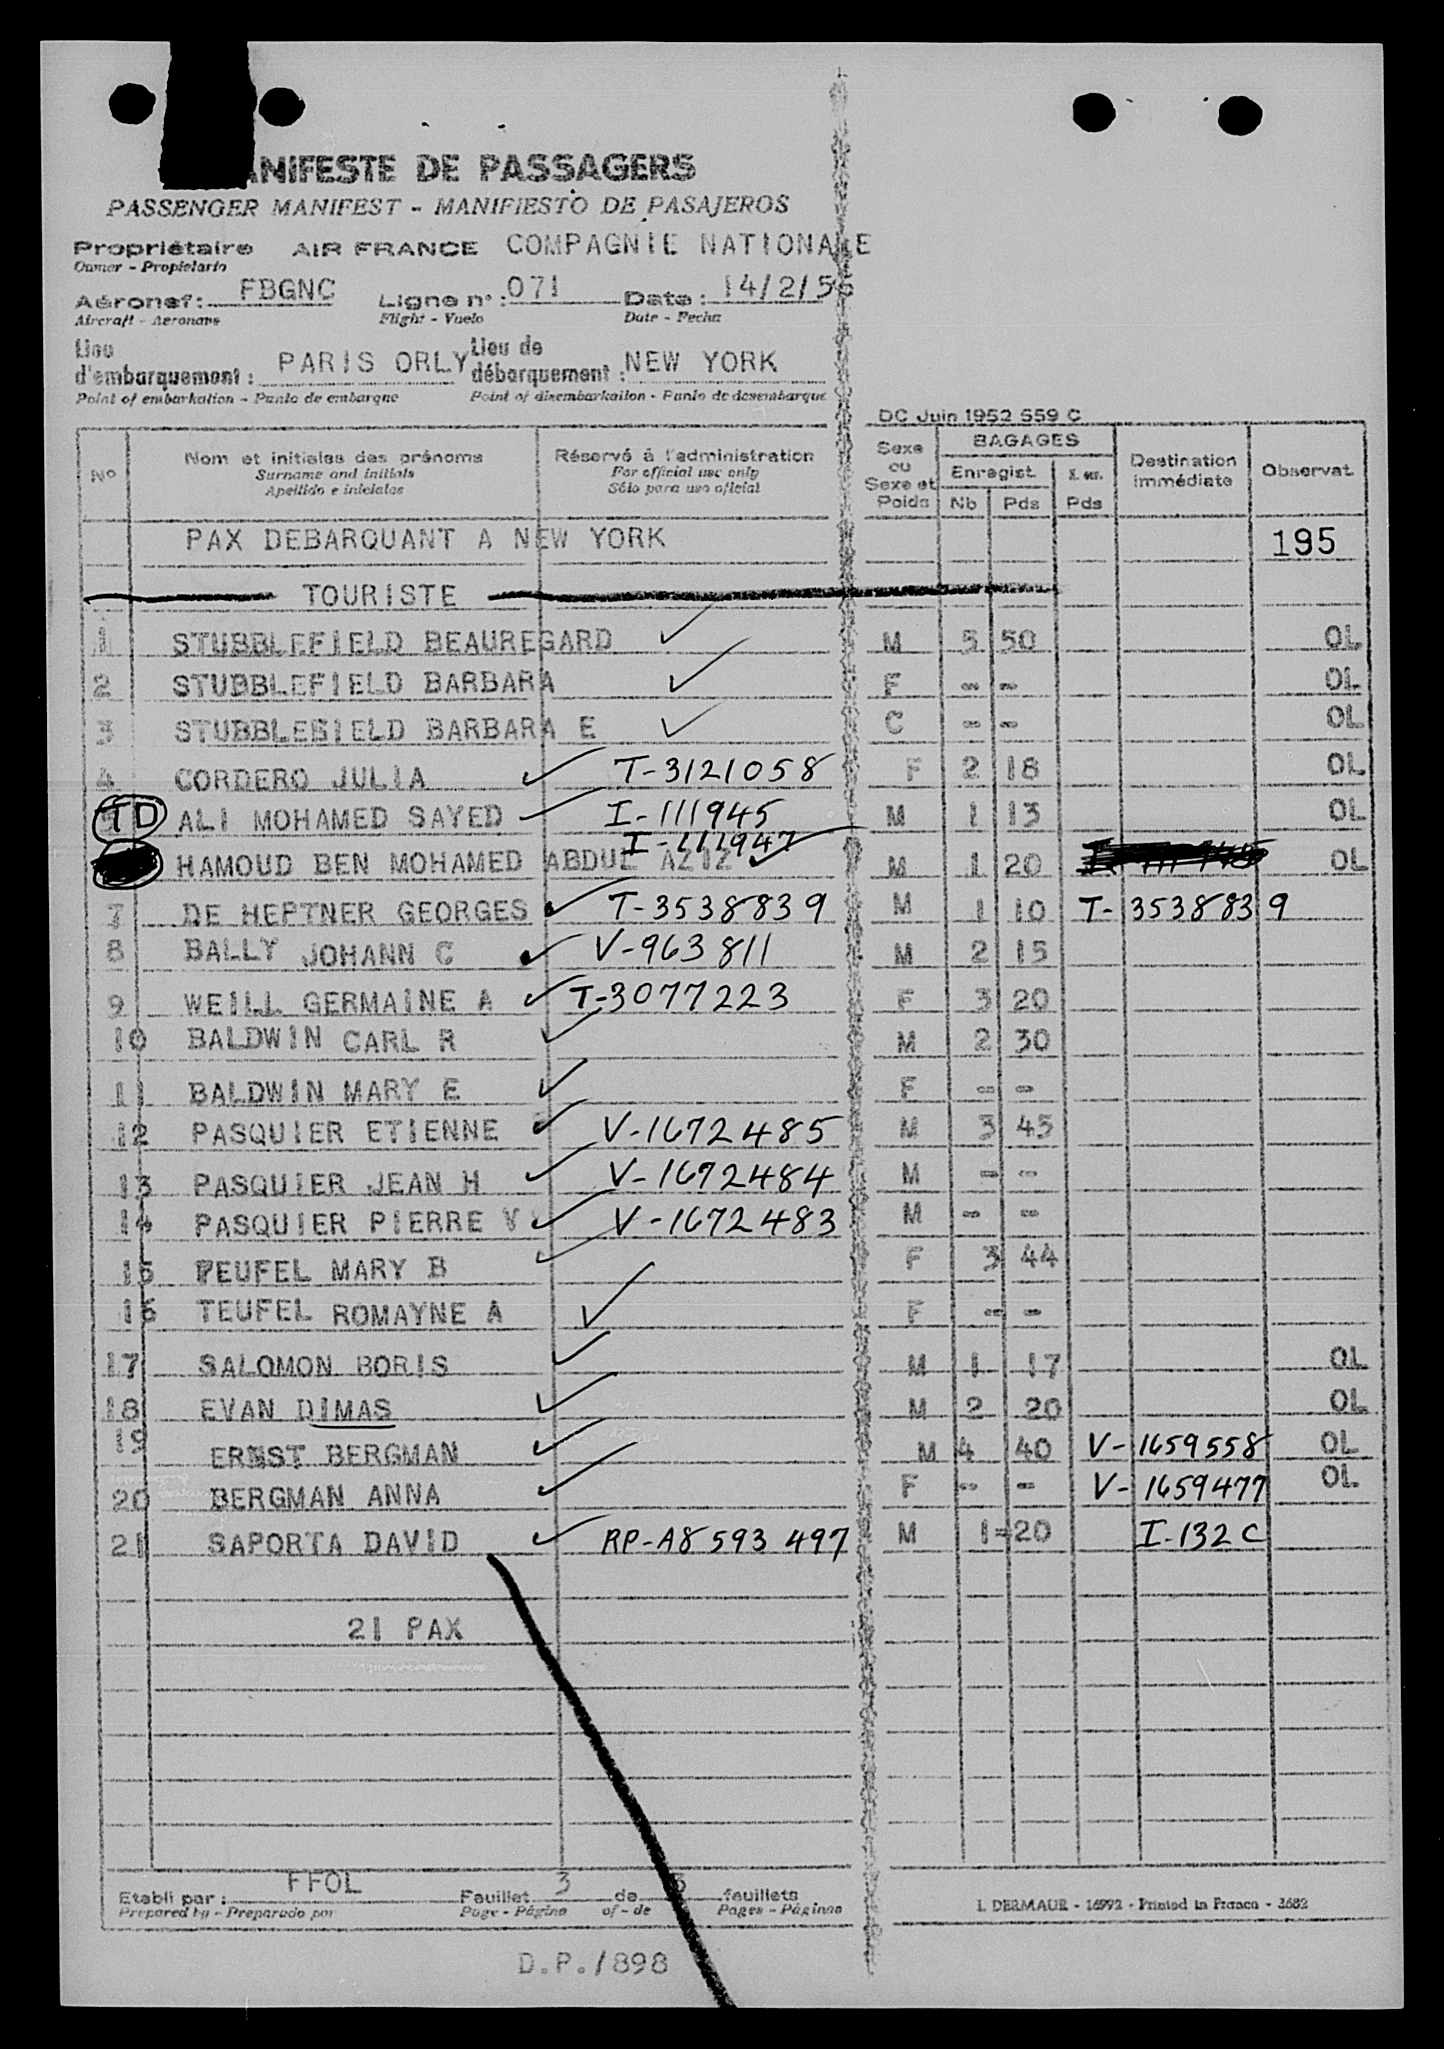 ANIFESTE DE PASSAGERS
PASSENGER MANIFEST - MANIFIESTO DE PASAJEROS
Propriétaire AIR FRANCE COMPAGNIE NATIONALE
Owner - Propietario
Aéronef: FBGNC Ligne n° : 071 Date : 14/2/56
Aircraft - Aeronave Flight - Vuelo Date - Fecha
Lieu d'embarquement : PARIS ORLY Lieu de débarquement : NEW YORK
Point of embarkation - Punto de embarque Point of disembarkation - Punto de desembarque
DC Juin 1952 S59 C
N° Nom et initiales des prénoms Réservé à l'administration Sexe ou Sexe et Poids BAGAGES Destination immédiate Observat.
Surname and initials For official use only Enregist.
Apellido e iniciales Sólo para uso oficial Nb Pds Pds
PAX DEBARQUANT A NEW YORK 195
TOURISTE
1 STUBBLEFIELD BEAUREGARD M 5 50 OL
2 STUBBLEFIELD BARBARA F - - OL
3 STUBBLEFIELD BARBARA E C - - OL
4 CORDERO JULIA T-3121058 F 2 18 OL
TD ALI MOHAMED SAYED I-111945 M 1 13 OL
I-111947
HAMOUD BEN MOHAMED ABDUL AZIZ M 1 20 OL
7 DE HEPTNER GEORGES T-3538839 M 1 10 T-3538839
8 BALLY JOHANN C V-963811 M 2 15
9 WEILL GERMAINE A T-3077223 F 3 20
10 BALDWIN CARL R M 2 30
11 BALDWIN MARY E F - -
12 PASQUIER ETIENNE V-1672485 M 3 45
13 PASQUIER JEAN H V-1672484 M - -
14 PASQUIER PIERRE V V-1672483 M - -
15 TEUFEL MARY B F 3 44
16 TEUFEL ROMAYNE A F - -
17 SALOMON BORIS M 1 17 OL
18 EVAN DIMAS M 2 20 OL
19 ERNST BERGMAN M 4 40 V-1659558 OL
20 BERGMAN ANNA F - - V-1659477 OL
21 SAPORTA DAVID RP-A8593497 M 1-20 I-132C
21 PAX
Etabli par : FFOL Feuillet 3 de feuillets
Prepared by - Preparado por Page - Página of - de Pages - Páginas
I. DERMAUR - 16992 - Printed in France - 3682
D.P./898